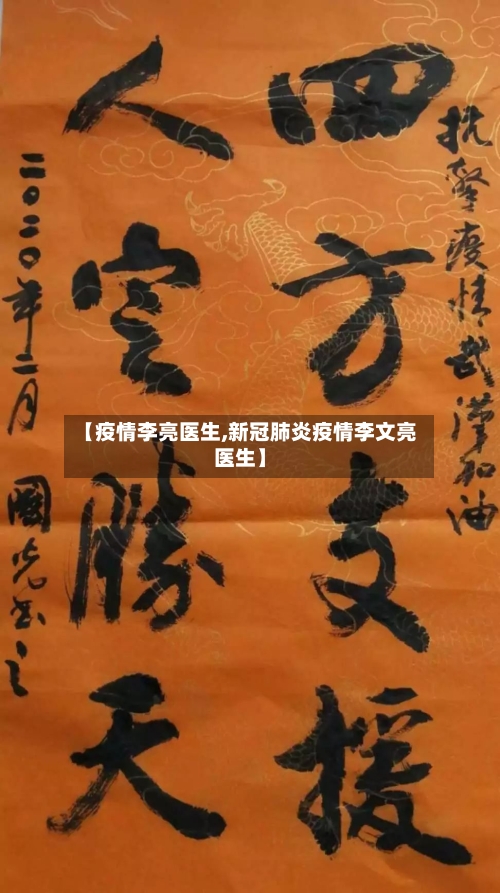 抗擊疫情武漢加油
四方支援
人定勝天
二〇二〇年二月
國光書之
【疫情李亮医生,新冠肺炎疫情李文亮
医生】